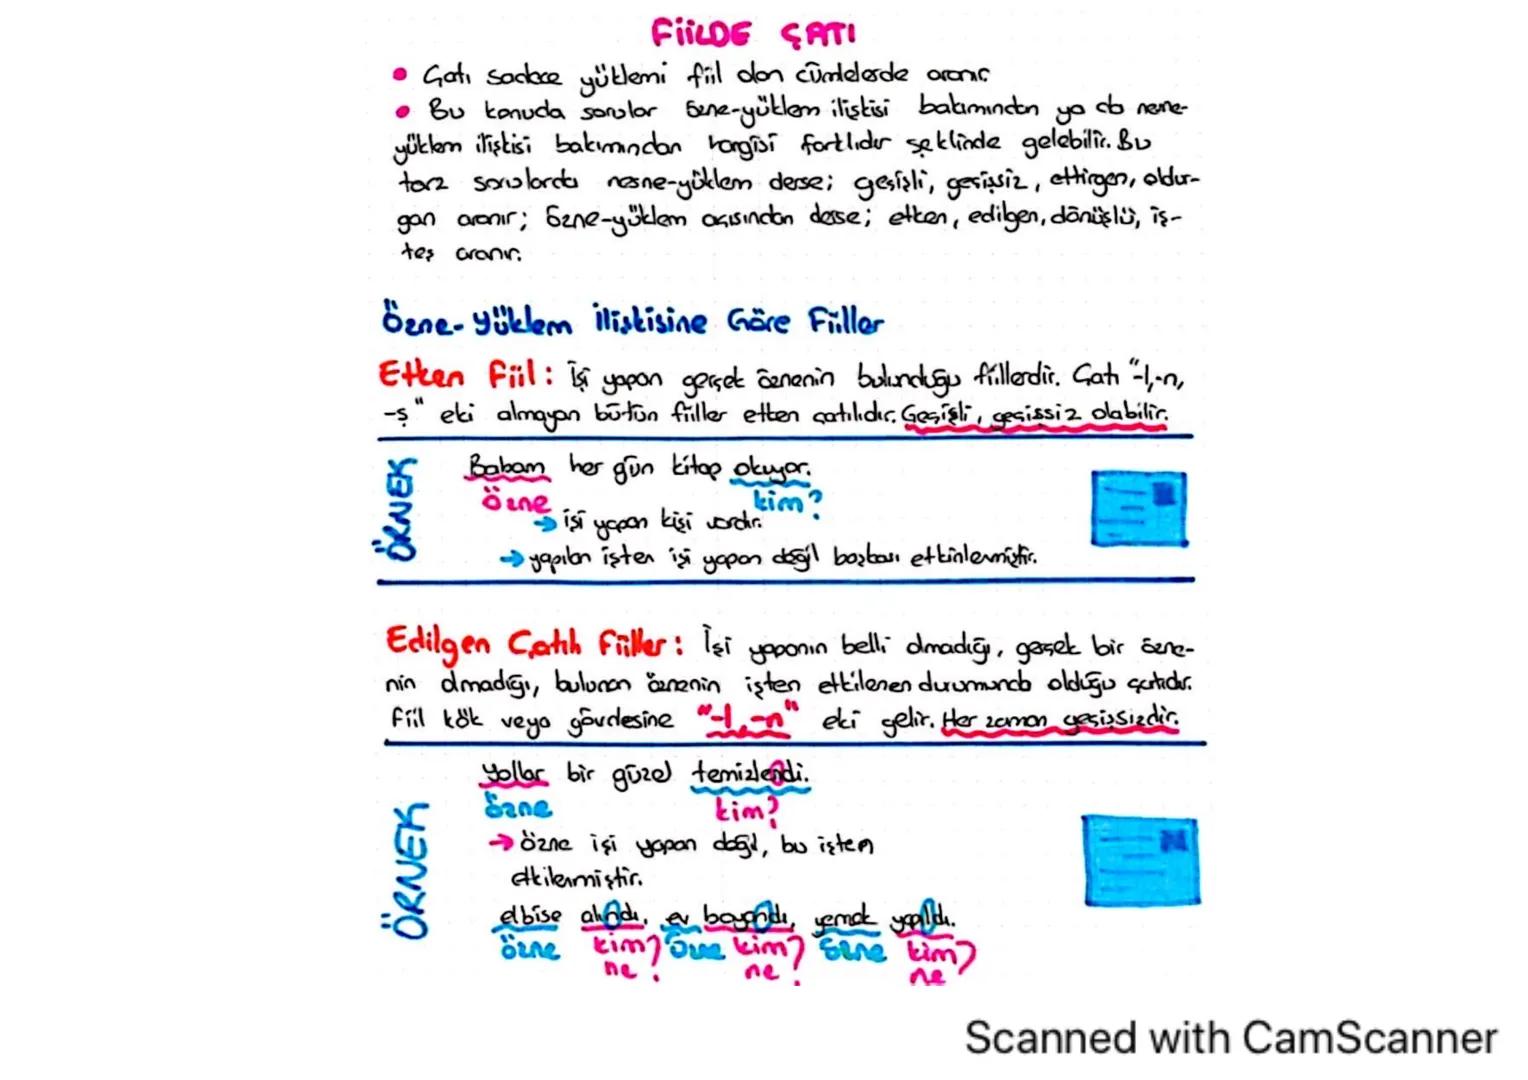 FİİLDE ÇATI
• Çatı sadece yüklemi fiil olan cümlelerde aranır
• Bu konuda sorular özne-yüklem ilişkisi bakımından ya da nesne-
yüklem ilişkisi bakımından hangisi farklıdır şeklinde gelebilir. Bu
tarz sorularda nesne-yüklem derse; geçişli, geçişsiz, ettirgen, oldur-
gan aranır; özne-yüklem açısından derse; etken, edilgen, dönüşlü, iş-
teş aranır.
Özne-Yüklem İlişkisine Göre Fiiller
Etken Fiil: İşi yapan gerçek öznenin bulunduğu fiillerdir. Çatı "-l,-n,
-ş" eki almayan bütün fiiller etken çatılıdır. Geçişli, geçişsiz olabilir.
ÖRNEK
Babam her gün kitap okuyor.
özne kim?
→ işi yapan kişi vardır.
→ yapılan işten işi yapan değil başkası etkinlenmiştir.
Edilgen Çatılı Fiiller: İşi yapanın belli olmadığı, gerçek bir özne-
nin olmadığı, bulunan öznenin işten etkilenen durumunda olduğu çatıdır.
Fiil kök veya gövdesine "-l, -n" eki gelir. Her zaman geçişsizdir.
ÖRNEK
Yollar bir güzel temizlendi.
özne kim?
→ özne işi yapan değil, bu işten
etkilenmiştir.
elbise alındı, ev boyandı, yemek yapıldı.
özne kim? özne kim? özne kim?
ne? ne ne
Scanned with CamScanner